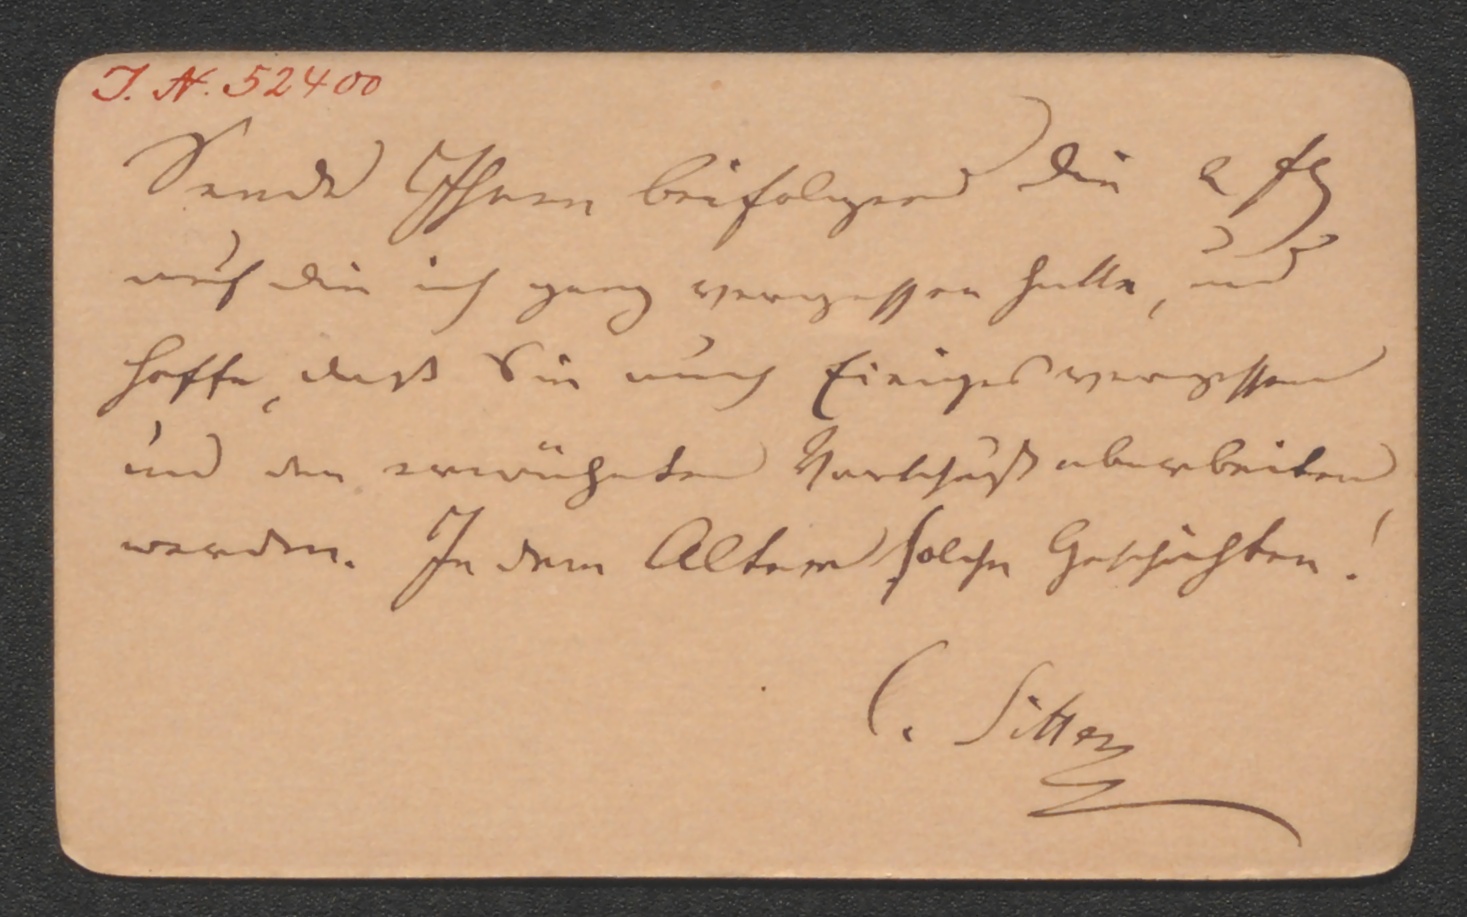 J. N. 52400
Sende Ihnen beifolgend die 2 fl
auf die ich ganz vergessen hatte, und
hoffe, daß Sie auch Einiges vergessen
und den erwähnten Vorschuß abarbeiten
werden. In dem Alter solche Geschichten!
C. Sitte